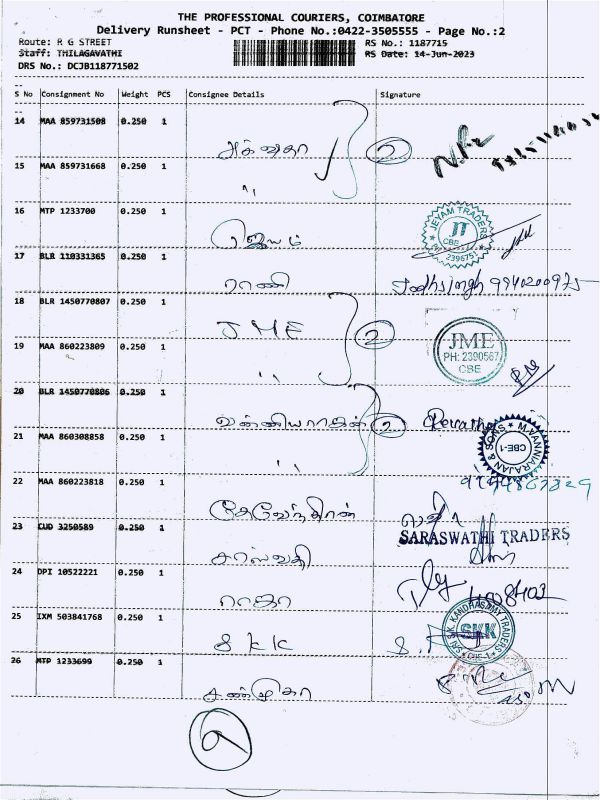 THE PROFESSIONAL COURIERS, COIMBATORE
Delivery Runsheet - PCT - Phone No.:0422-3505555 - Page No.:2
Route: R G STREET RS No.: 1187715
Staff: THILAGAVATHI RS Date: 14-Jun-2023
DRS No.: DCJB118771502
S No Consignment No Weight PCS Consignee Details Signature
14 MAA 859731508 0.250 1
2
15 MAA 859731668 0.250 1
"
16 MTP 1233700 0.250 1
ஜெயம் JEYAM TRADERS JT CBE 239675
17 BLR 110331365 0.250 1
ராணி Jodhsingh 9940200975
18 BLR 1450770807 0.250 1
JME 2
19 MAA 860223809 0.250 1
" JME PH: 2390567 CBE
20 BLR 1450770806 0.250 1
வன்னியராஜன் 2 Revathy
21 MAA 860308858 0.250 1
" M.VANNIARAJAN & SONS CBE-1
22 MAA 860223818 0.250 1
தேவேந்திரன்
23 CUD 3250589 0.250 1
சரஸ்வதி SARASWATHI TRADERS
24 DPI 10522221 0.250 1
ராஜா
25 IXM 503841768 0.250 1
SKK S.K. KANDHASAMY TRADERS SKK CBE-1
26 MTP 1233699 0.250 1
சண்முகா
9